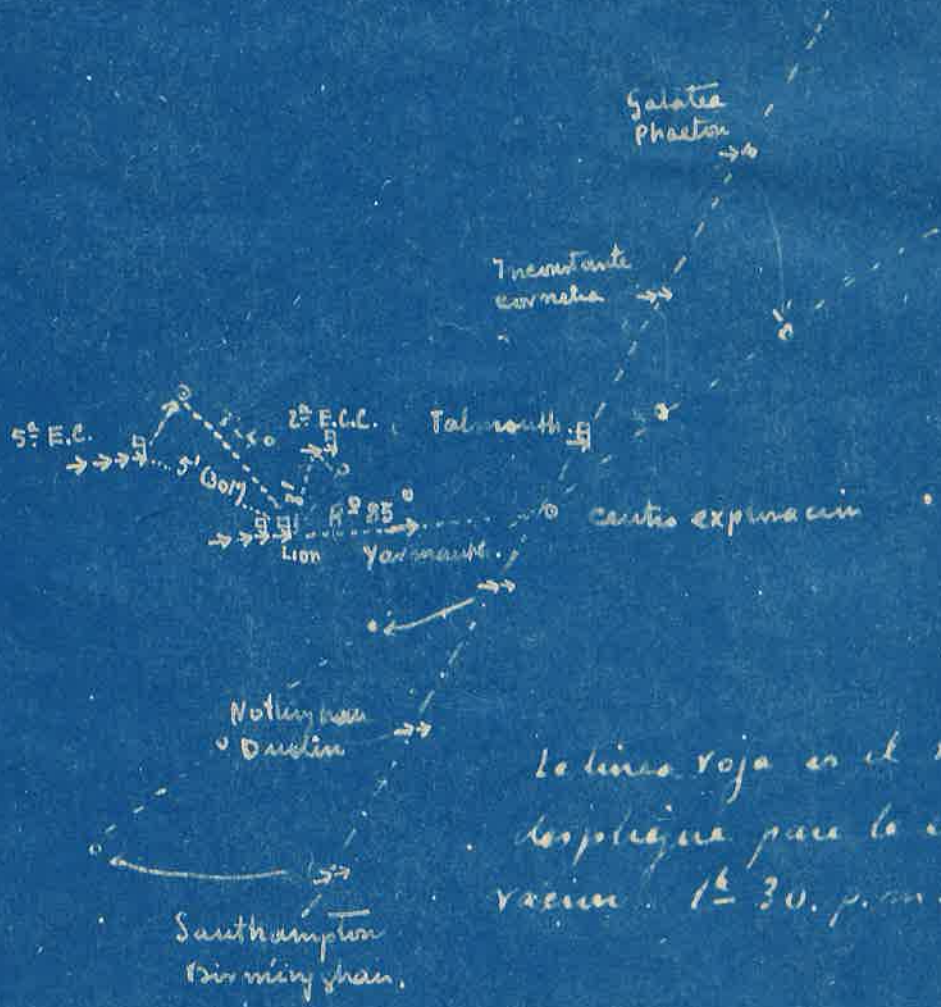 Galatea
Phaeton
Inconstante
cornelia
5ª E.C.
2ª E.C.C.
Falmouth.
5' 
Rº 85º
centro exploracion
Lion
Yarmouth.
Nottingham
Dublin
La linea roja es el
despliegue para la
1h 30. p.m
Southampton
Birmingham.